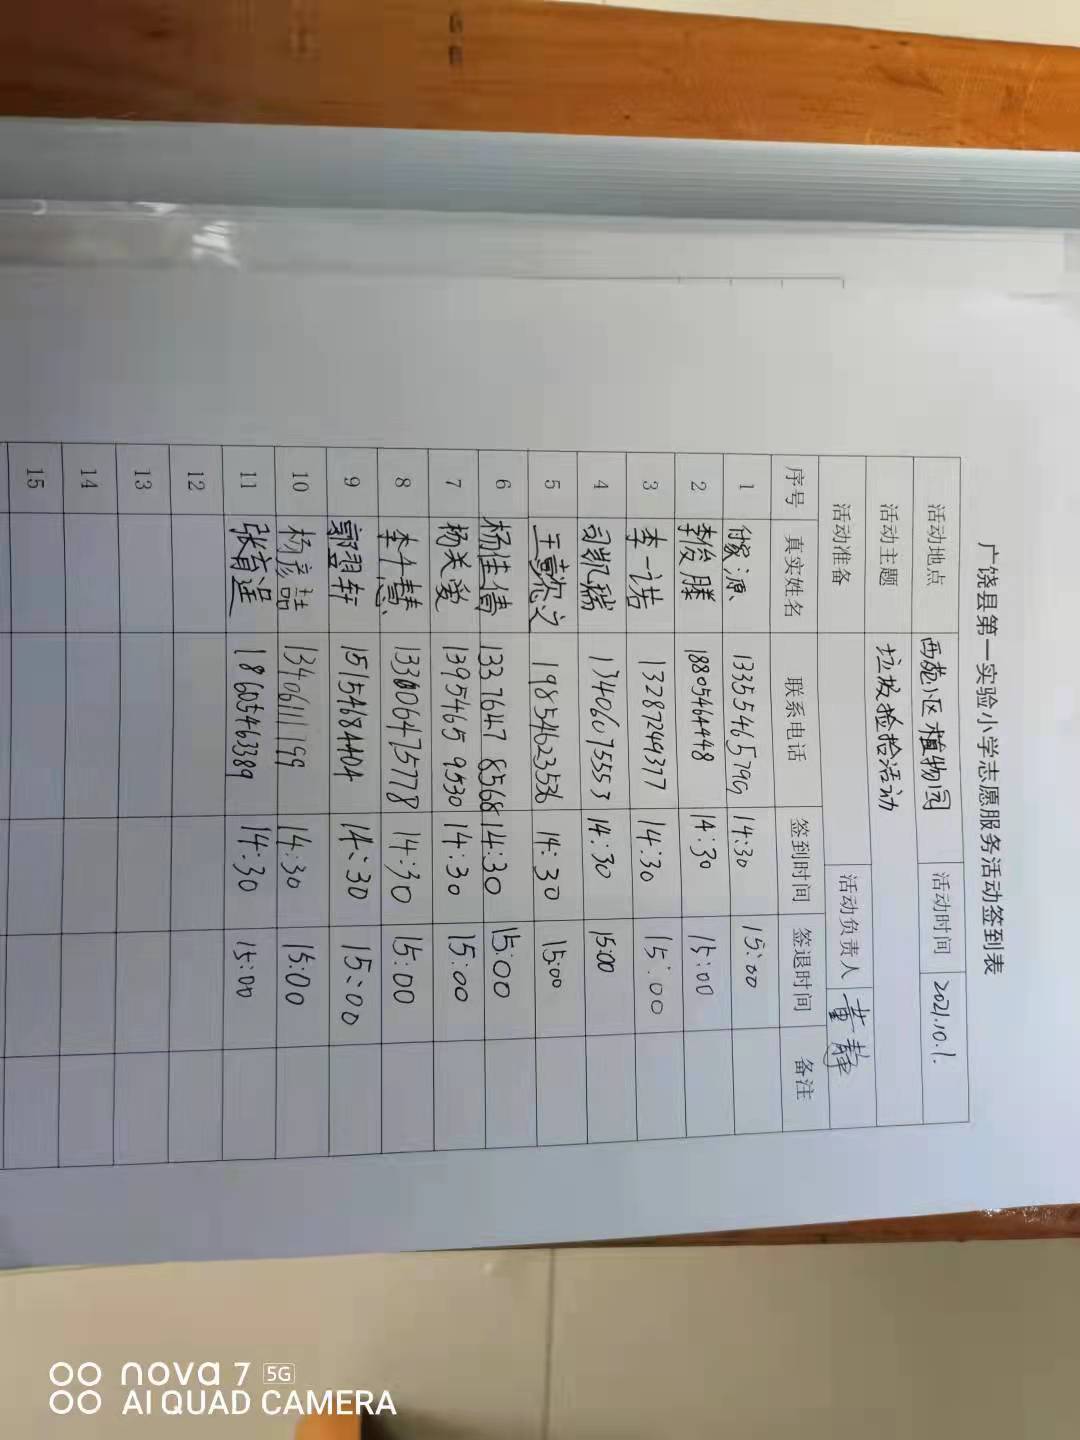 广饶县第一实验小学志愿服务活动签到表
活动地点 西苑小区植物园 活动时间 2021.10.1.
活动主题 垃圾捡拾活动
活动准备 活动负责人 董静
序号 真实姓名 联系电话 签到时间 签退时间 备注
1 付家源 13355465799 14:30 15:00
2 李俊滕 18805464448 14:30 15:00
3 李一诺 13287249377 14:30 15:00
4 司凯瑞 13406075553 14:30 15:00
5 王懿 之 19854623536 14:30 15:00
6 杨佳倩 133 7647 8568 14:30 15:00
7 杨关爱 1395465 9530 14:30 15:00
8 李 慧 14:30 15:00
9 郭翌轩 15154684404 14:30 15:00
10 杨彦喆 13406111199 14:30 15:00
11 张育 18605463389 14:30 15:00
12
13
14
15
nova 7 5G
AI QUAD CAMERA